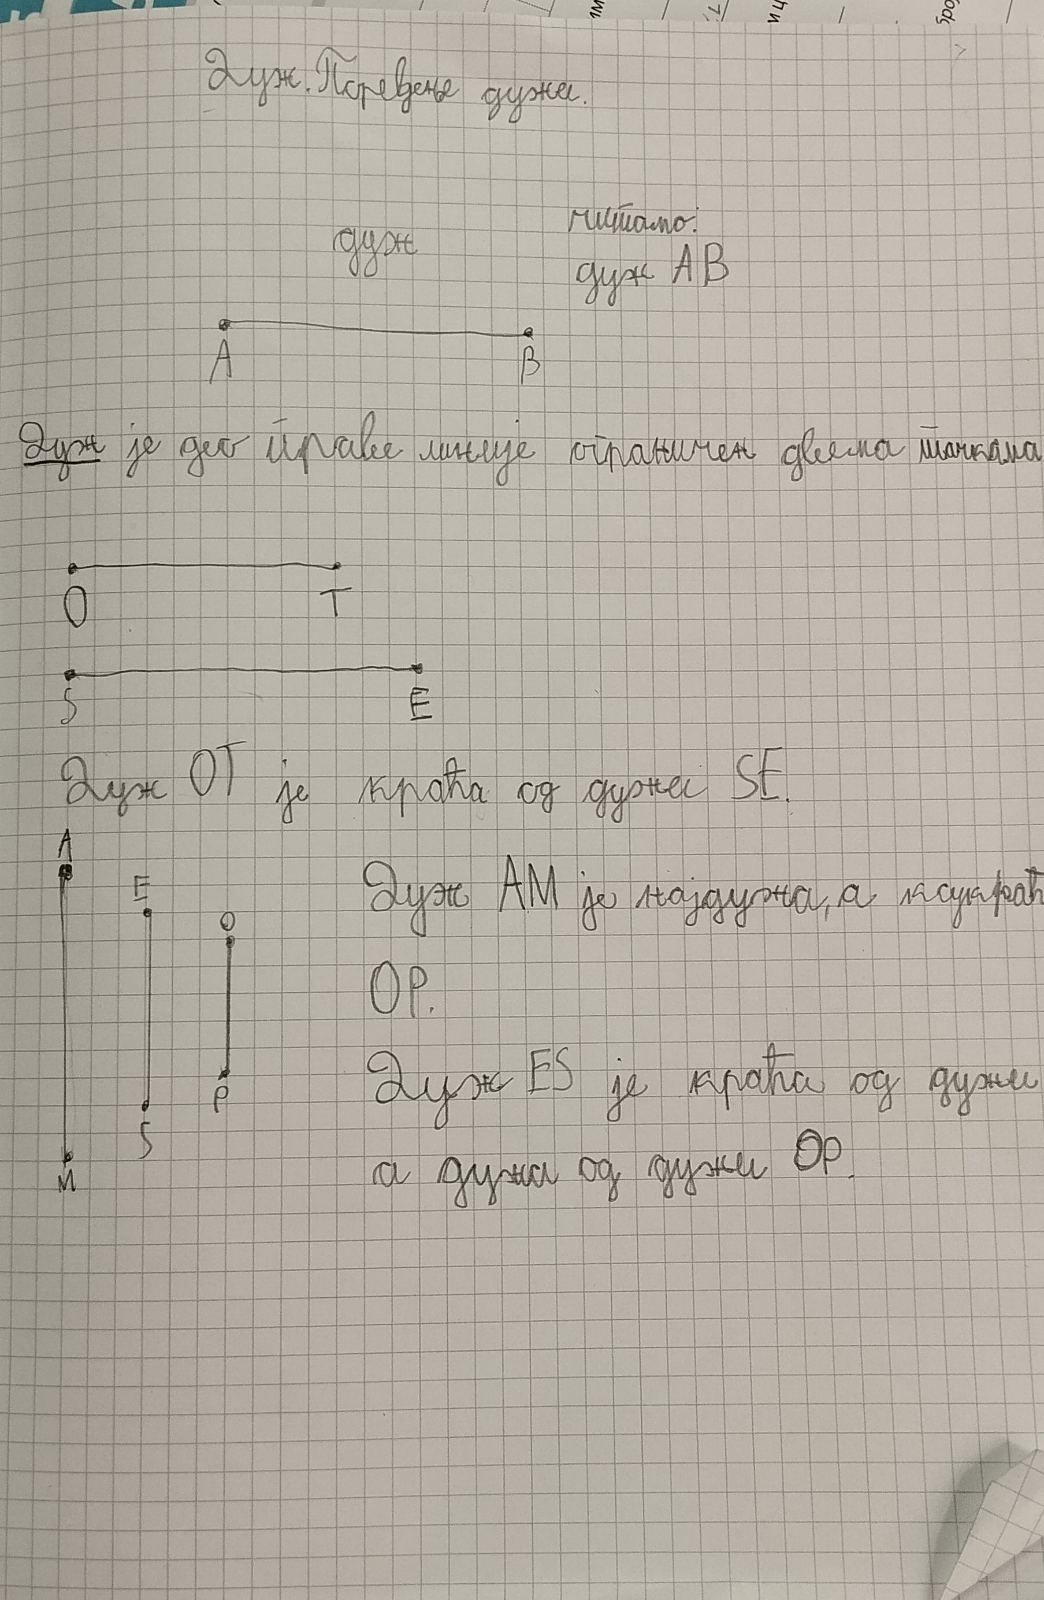 Дуж. Поређење дужи.
читамо:
дуж
дуж AB
A B
Дуж је део праве линије ограничен двема тачкама
O T
S E
Дуж OT је краћа од дужи SE.
A
E
O
Дуж AM је најдужа, а најкраћ
OP.
Дуж ES је краћа од дужи
P
S
M
а дужа од дужи OP.